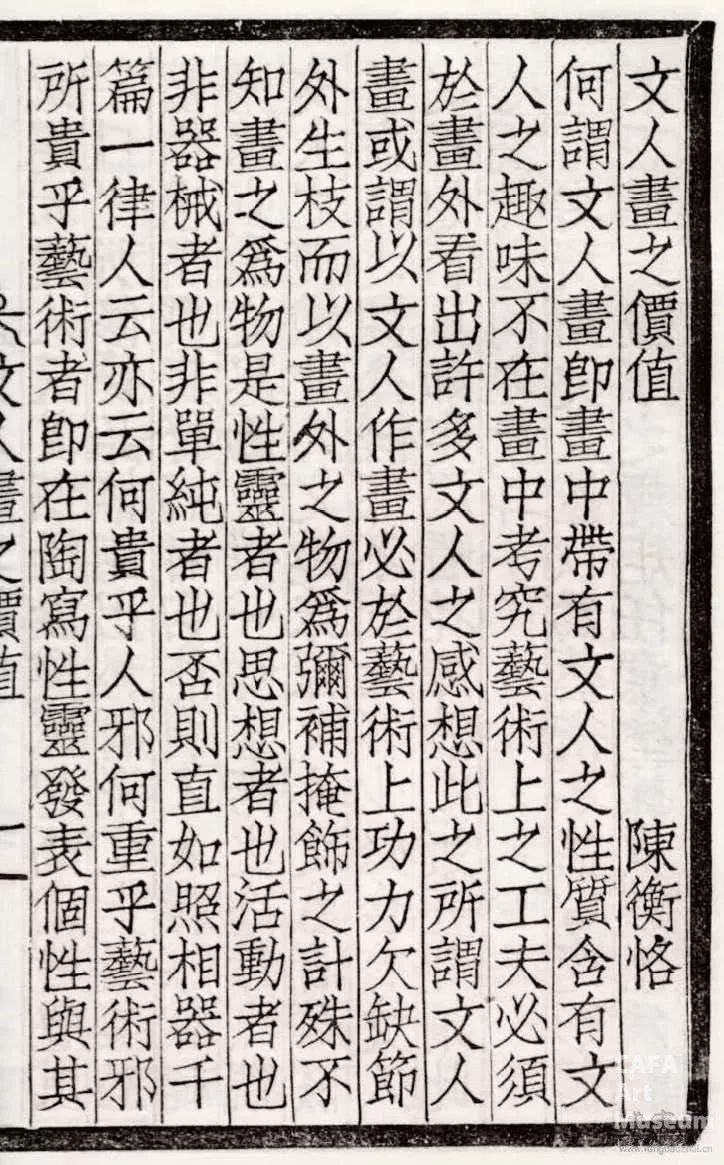 文人畫之價值 陳衡恪
何謂文人畫卽畫中帶有文人之性質含有文
人之趣味不在畫中考究藝術上之工夫必須
於畫外看出許多文人之感想此之所謂文人
畫或謂以文人作畫必於藝術上功力欠缺節
外生枝而以畫外之物爲彌補掩飾之計殊不
知畫之爲物是性靈者也思想者也活動者也
非器械者也非單純者也否則直如照相器千
篇一律人云亦云何貴乎人邪何重乎藝術邪
所貴乎藝術者卽在陶寫性靈發表個性與其
文人畫之價值 一
CAFA
Art
Museum